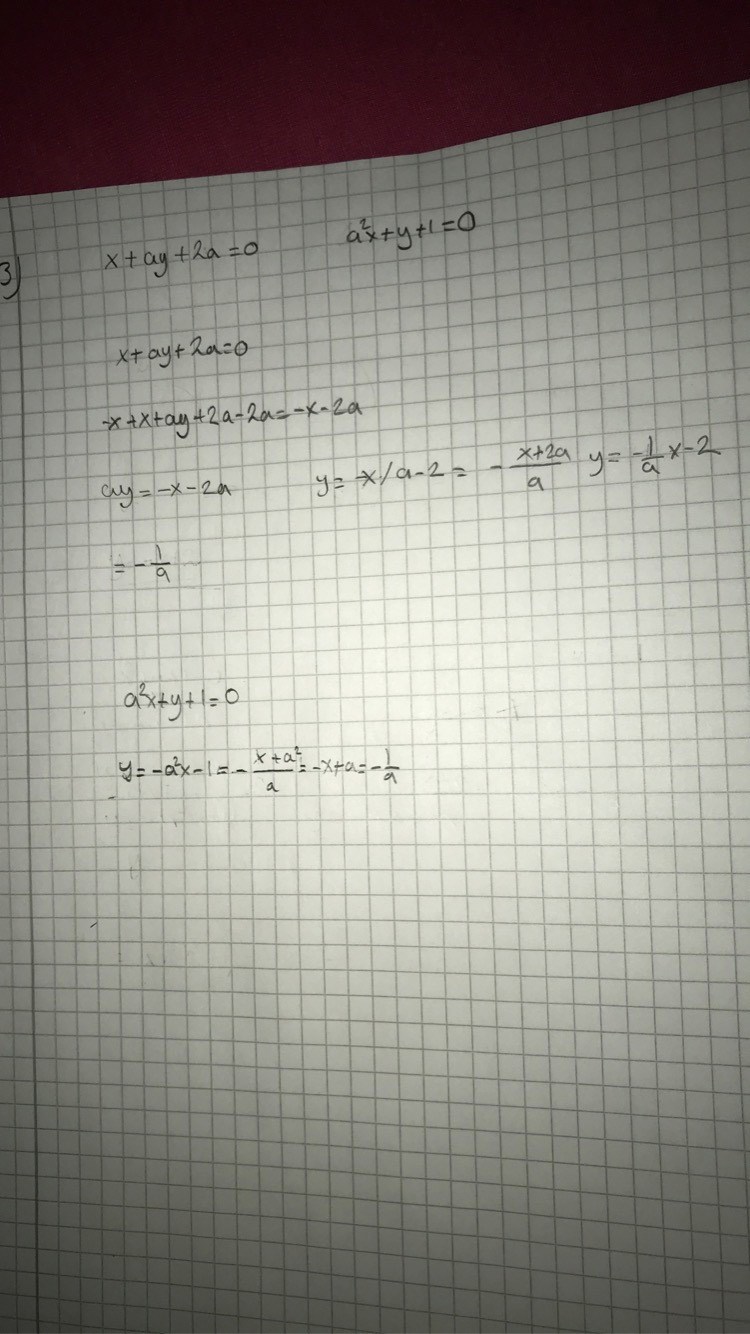 3) x+ay+2a=0 a²x+y+1=0
x+ay+2a=0
-x+x+ay+2a-2a=-x-2a
ay=-x-2a y=-x/a-2= -\frac{x+2a}{a} y=-\frac{1}{a}x-2
=-\frac{1}{a}
a²x+y+1=0
y=-a²x-1=-\frac{x+a²}{a}=-x+a=-\frac{1}{a}